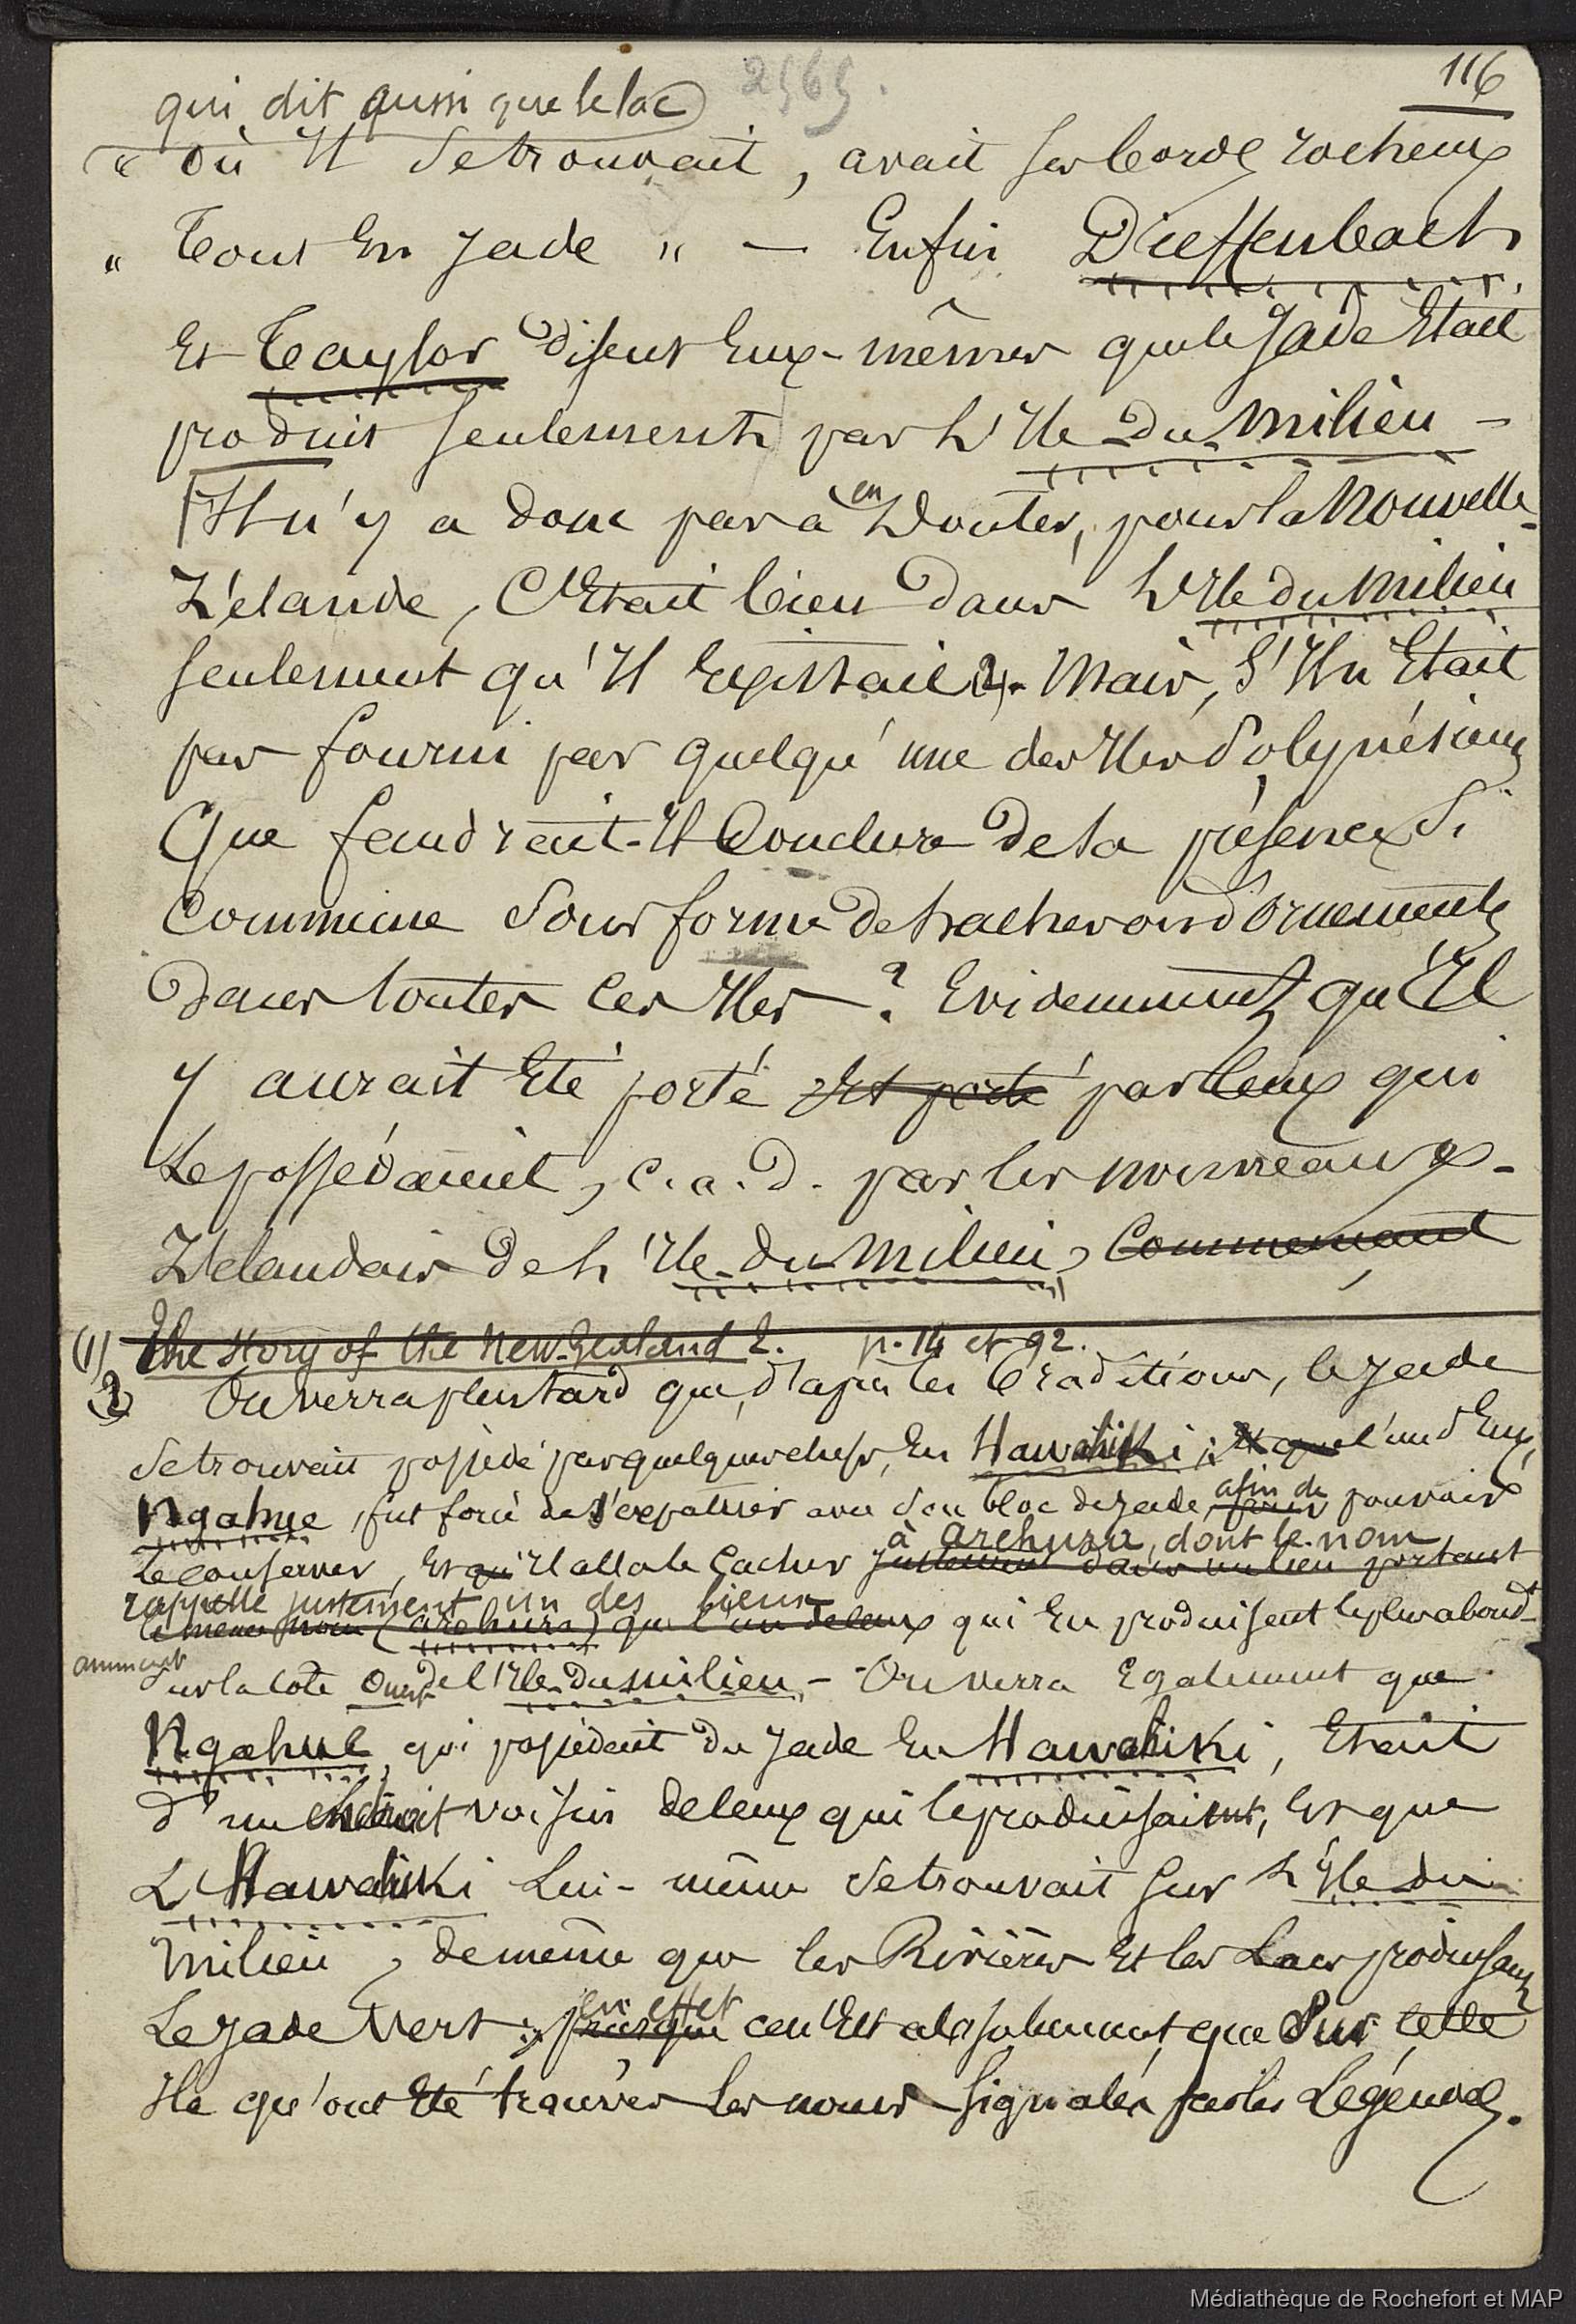 2565.
116
qui dit aussi que le lac
" où Il se trouvait, avait ses bords rocheux
" tous En Jade " — Enfin Dieffenbach
Et Taylor disent Eux-mêmes que le Jade Etait
produit seulement par l'Ile du Milieu -
Il n'y a donc pas à en Douter, pour la Nouvelle-
Zélande, C'Etait bien dans l'Ile du Milieu
seulement qu'Il Existait (2). Mais, s'Il n'Etait
pas fourni par quelqu'une des Iles Polynésiennes
Que faudrait-Il Conclure De sa présence si
Commune sous forme De haches ou d'ornements
Dans toutes ces Iles ? Evidemment qu'Il
y aurait Eté porté Est porté par Ceux qui
Le possédaient, c.a.d. par les nouveaux-
Zélandais De l'Ile du Milieu, Commement
(1) The Story of the New-Zealand 2. p. 14 et 92.
(2) On verra plus tard que, d'après les traditions, le Jade
se trouvait possédé par quelques chefs, En Hawahiki ; Et que l'un d'Eux,
Ngahue, fut forcé de s'expatrier avec son bloc de jade, afin de pour pouvoir
le conserver, Et qu'Il alla le cacher à arehura, dont le nom justement dans un lieu portant
rappelle justement un des lieux le même nom (arehura) que l'un de ceux qui En produisent le plus abond-
amment sur la côte Ouest de l'Ile du milieu - On verra Egalement que
Ngahue, qui possédait du Jade En Hawahiki, Etait
d'un endroit voisin de ceux qui le produisaient, Et que
L'Hawahiki Lui-même se trouvait sur l'Ile du
Milieu, de même que les Rivières Et les Lacs produisant
Le Jade Vert ; en effet puisque ce n'Est absolument que Sur cette
Ile qu'ont Eté trouvés Les noms signalés par les Légendes.
Médiathèque de Rochefort et MAP